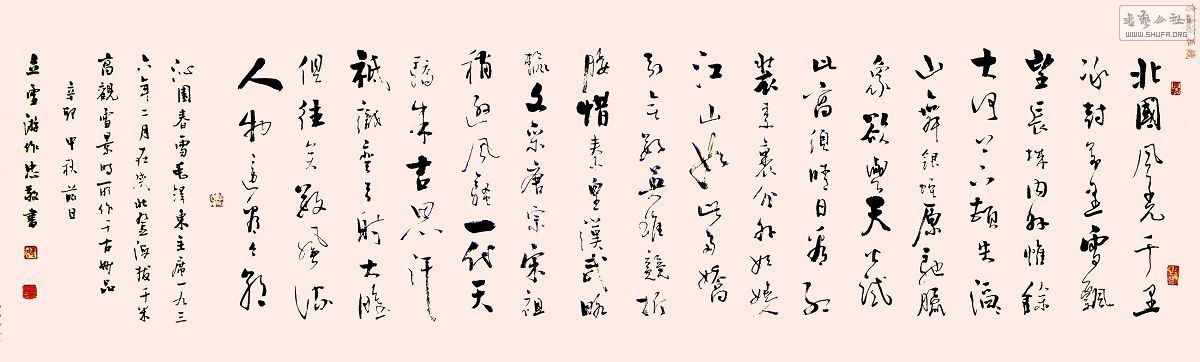 北國風光千里
冰封萬里雪飄
望長城內外惟餘
大河上下頓失滔
山舞銀蛇原馳臘
象欲與天公試
比高須晴日看紅
裝素裹分外妖嬈
江山如此多嬌
引無數英雄競折
腰惜秦皇漢武略
輸文采唐宗宋祖
稍遜風騷一代天
驕成吉思汗
祇識彎弓射大雕
俱往矣數風流
人物還看今朝
沁園春雪毛澤東主席一九三
六年二月在陝北登海拔千米
高觀雪景時所作千古品
辛卯中秋前日
立雪游作忠書
书艺公社
WWW.SHUFA.ORG